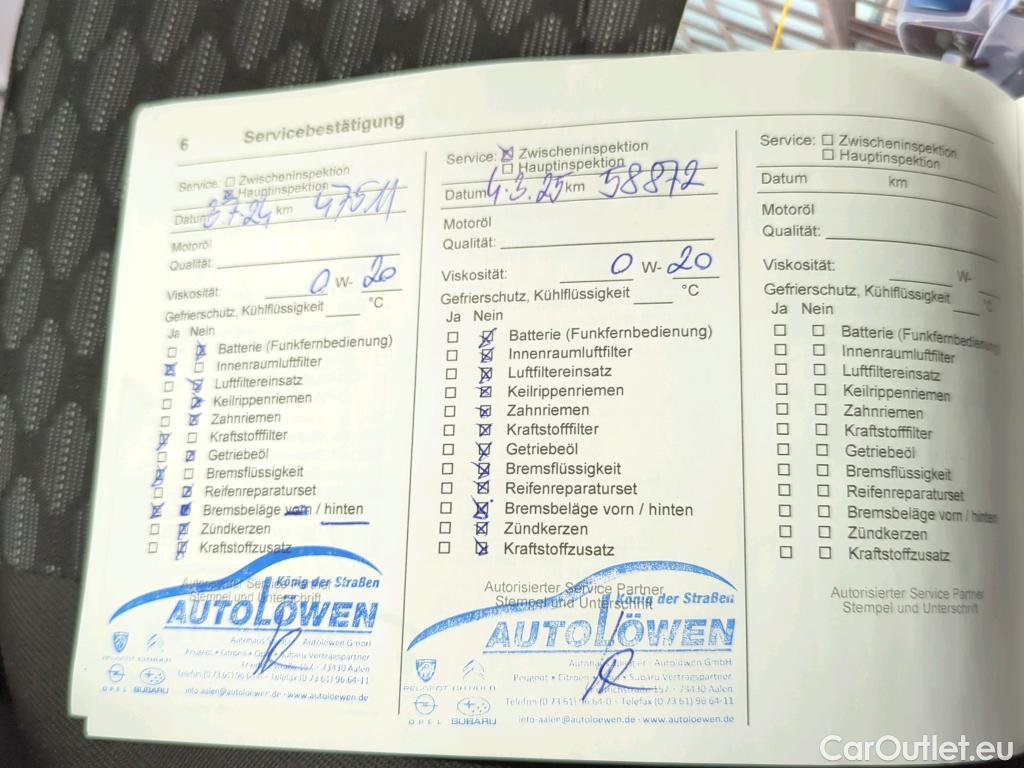 6 Servicebestätigung
Service: Zwischeninspektion
Hauptinspektion
Datum 3.7.24 km 47511
Motoröl
Qualität:
Viskosität: 0 W- 20
Gefrierschutz, Kühlflüssigkeit °C
Ja Nein
Batterie (Funkfernbedienung)
Innenraumluftfilter
Luftfiltereinsatz
Keilrippenriemen
Zahnriemen
Kraftstofffilter
Getriebeöl
Bremsflüssigkeit
Reifenreparaturset
Bremsbeläge vorn / hinten
Zündkerzen
Kraftstoffzusatz
Autorisierter Service Partner
Stempel und Unterschrift
König der Straßen
AUTOLÖWEN
Autolöwen GmbH
Peugeot • Citroen • Subaru Vertragspartner
157 - 73430 Aalen
Telefax (0 73 61) 96 64-11
PEUGEOT
OPEL SUBARU
info-aalen@autoloewen.de - www.autoloewen.de
Service: Zwischeninspektion
Hauptinspektion
Datum 4.3.25 km 58872
Motoröl
Qualität:
Viskosität: 0 W- 20
Gefrierschutz, Kühlflüssigkeit °C
Ja Nein
Batterie (Funkfernbedienung)
Innenraumluftfilter
Luftfiltereinsatz
Keilrippenriemen
Zahnriemen
Kraftstofffilter
Getriebeöl
Bremsflüssigkeit
Reifenreparaturset
Bremsbeläge vorn / hinten
Zündkerzen
Kraftstoffzusatz
Autorisierter Service Partner
Stempel und Unterschrift
König der Straßen
AUTOLÖWEN
Autolöwen GmbH
Peugeot • Citroen • Subaru Vertragspartner
157 - 73430 Aalen
Telefon (0 73 61) 96 64-0 - Telefax (0 73 61) 96 64-11
PEUGEOT
OPEL SUBARU
info-aalen@autoloewen.de - www.autoloewen.de
Service: Zwischeninspektion
Hauptinspektion
Datum km
Motoröl
Qualität:
Viskosität: W-
Gefrierschutz, Kühlflüssigkeit °C
Ja Nein
Batterie (Funkfernbedienung)
Innenraumluftfilter
Luftfiltereinsatz
Keilrippenriemen
Zahnriemen
Kraftstofffilter
Getriebeöl
Bremsflüssigkeit
Reifenreparaturset
Bremsbeläge vorn / hinten
Zündkerzen
Kraftstoffzusatz
Autorisierter Service Partner
Stempel und Unterschrift
CarOutlet.eu